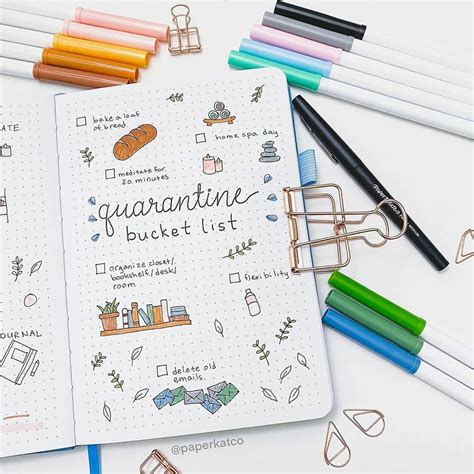 bake a loaf
of bread
home spa day
meditate for
20 minutes
quarantine
bucket list
organize closet/
bookshelf/desk/
room
flexibility
delete old
emails
@paperkatco
OURNAL